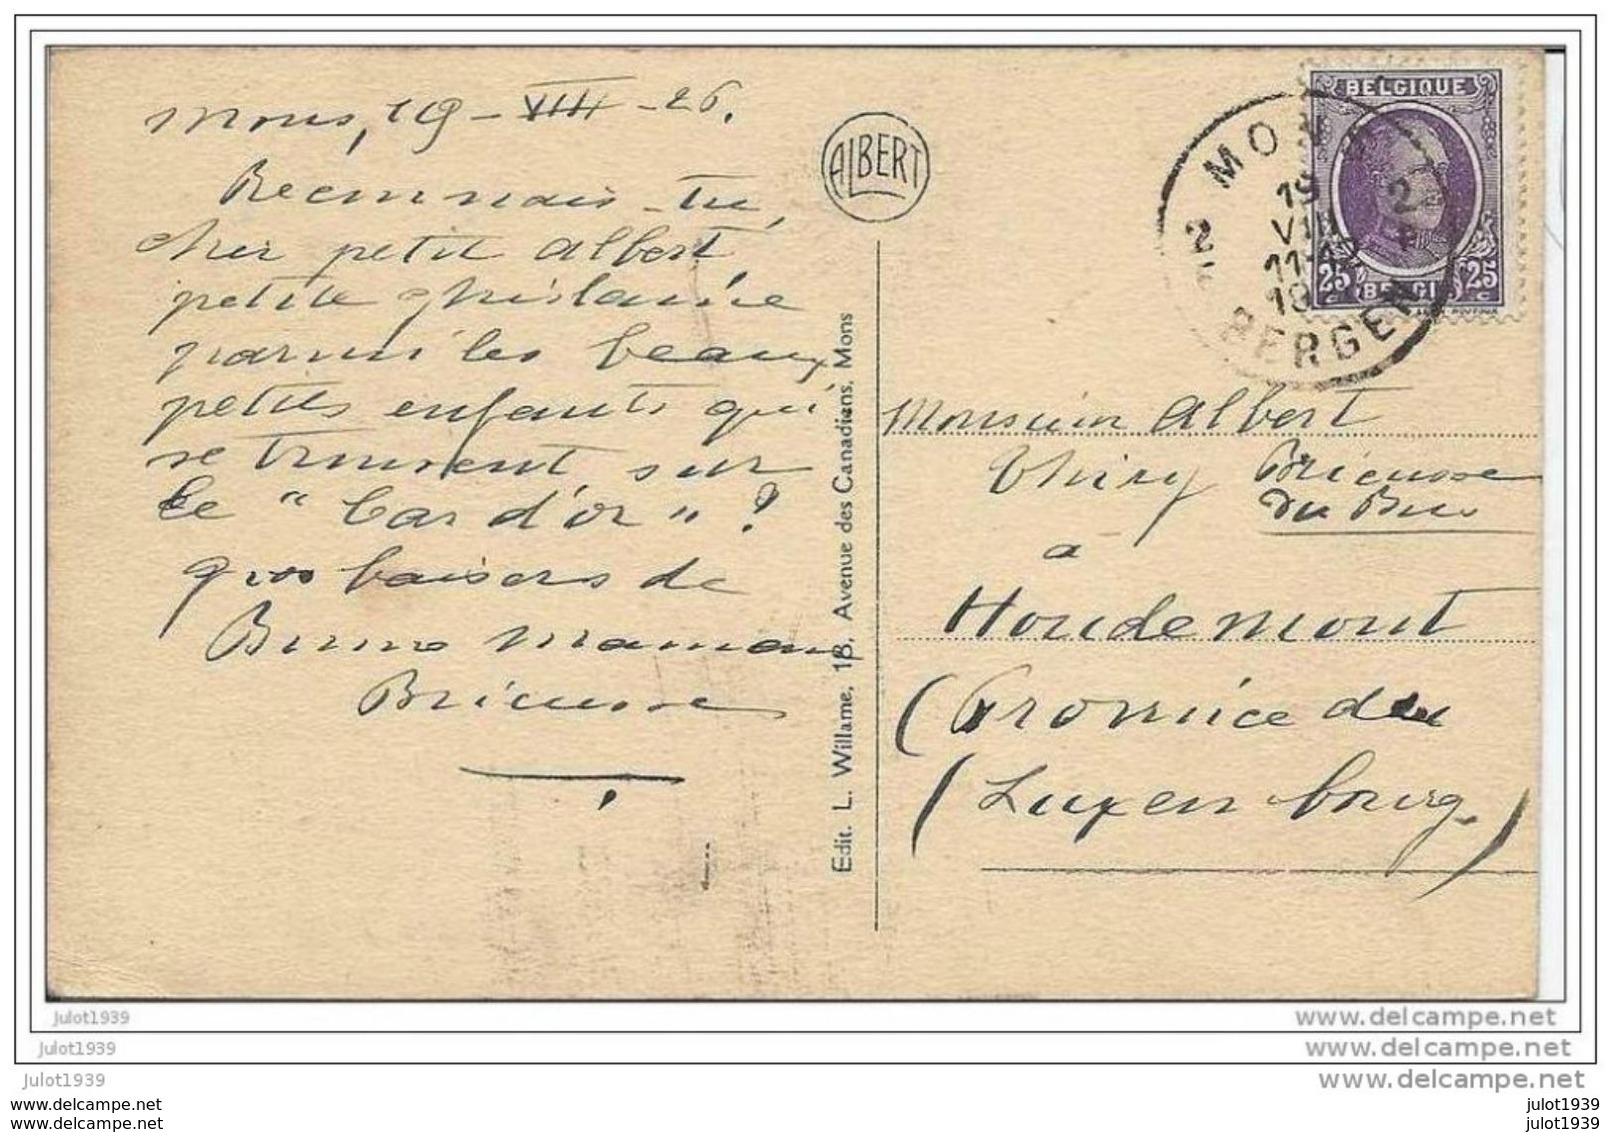 Mons, 19 - VIII - 26.
Reconnais-tu,
cher petit Albert,
petite Ghislaine
parmi les beaux
petits enfants qui
se trouvent sur
le "Car d'or" ?
gros baisers de
Bonne Maman
Bricusse
ALBERT
Edit. L. Willame, 18, Avenue des Canadiens, Mons
BELGIQUE
25 BELGIË 25
MONS
2 19 2
VIII
11-12
19
BERGEN
Monsieur Albert
Thiry Bricusse
du Bus
à
Houdemont
(Province du
(Luxembourg.)
julot1939
www.delcampe.net
julot1939
www.delcampe.net
julot1939
www.delcampe.net
www.delcampe.net
julot1939
www.delcampe.net
julot1939